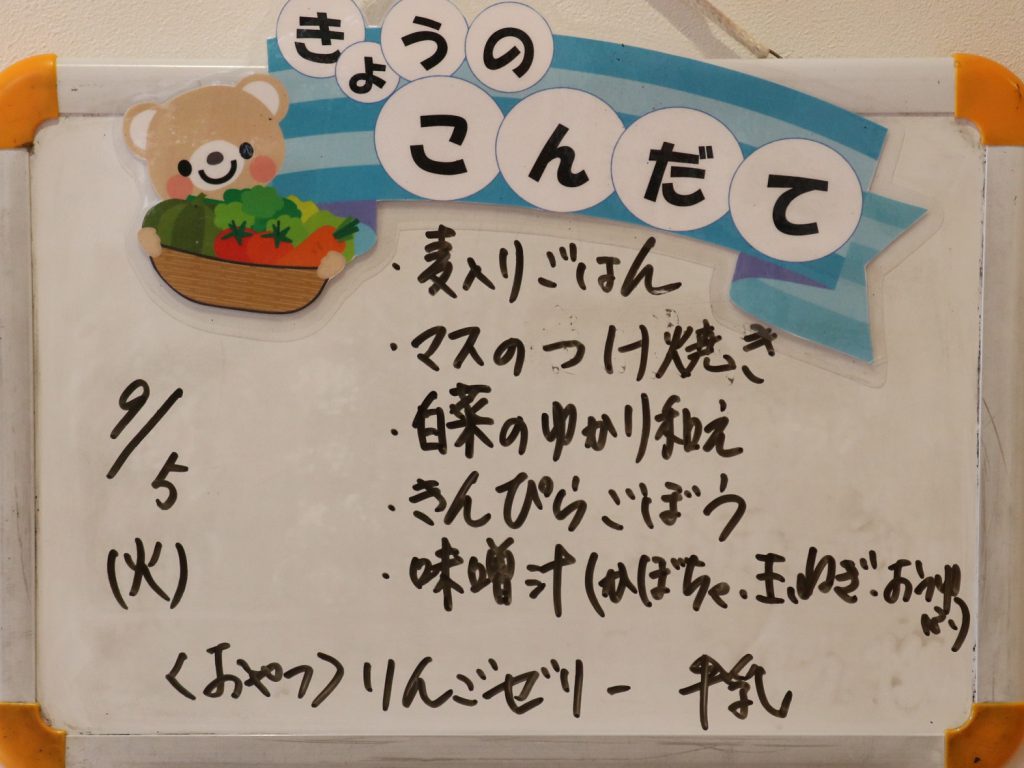 きょうの
こんだて
・麦入りごはん
・マスのつけ焼き
・白菜のゆかり和え
・きんぴらごぼう
9/5
(火)
・味噌汁(かぼちゃ、玉ねぎ、おつゆ
〈おやつ〉りんごゼリー 牛乳